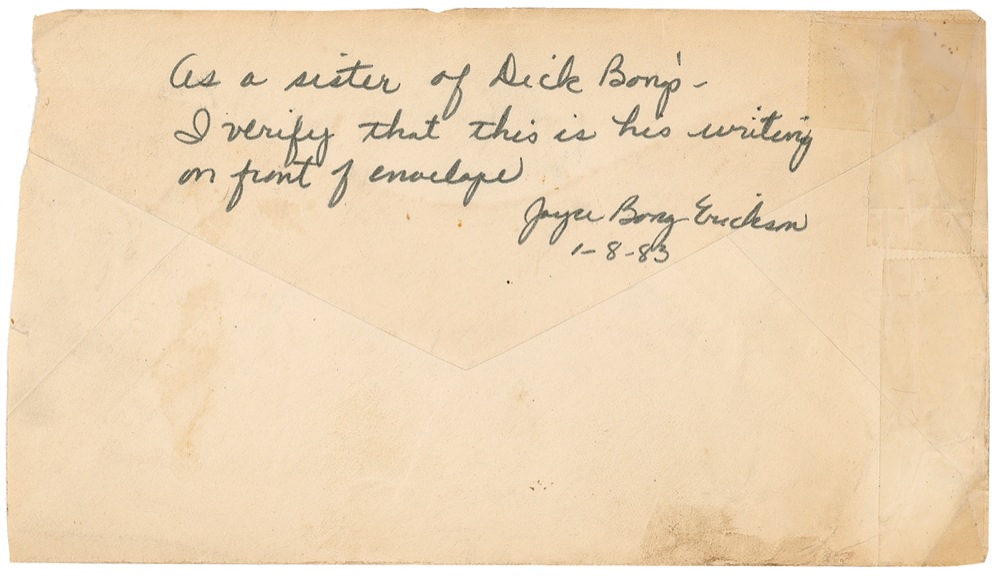 As a sister of Dick Bong's -
I verify that this is his writing
on front of envelope
Joyce Bong Erickson
1-8-83